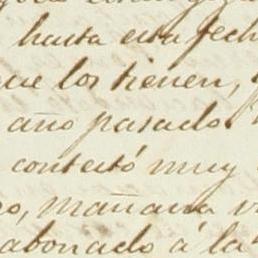 hasta esta fech
que los tienen, y
año pasado.
contestó muy
o, mañana v
abonado á la